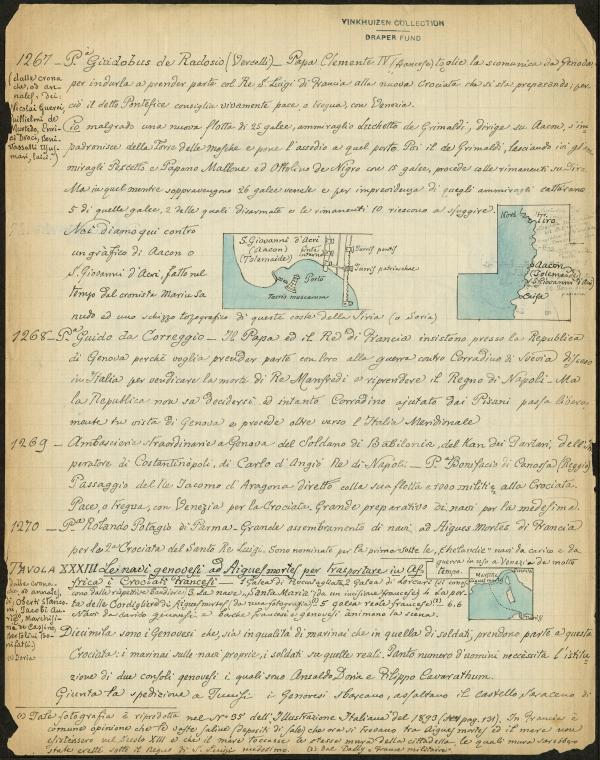 VINKHUIZEN COLLECTION
DRAPER FUND
1267 — P.à Guidobus de Radosio (Vercelli) — Papa Clemente IV (francese) toglie la scomunica da Genova
per indurla a prender parte col Re S. Luigi di Francia alla nuova Crociata che si sta preparando; per
ciò il detto Pontefice consiglia vivamente pace, o tregua, con Venezia.
(dalle crona
che, od an
nales, dei:
Nicolai Guerci,
Guillielmi de
Murtedo, Enri
ci Droci, Boni
vassalli Usu
mari, laici.")
Ciò malgrado una nuova flotta di 25 galee, ammiraglio Lucchetto de Grimaldi, dirige su Aacon, s'im
padronisce della Torre delle mosche e pone l'assedio a quel porto. Poi il de Grimaldi, lasciando ivi gli am
miragli Pescetto e Papono Mallone ed Ottolino de Nigro con 15 galee, procede colle rimanenti su Tiro.
Ma in quel mentre sopravvengono 26 galee venete e per imprevidenza di quegli ammiragli catturano
5 di quelle galee, 2 delle quali disarmate e le rimanenti 10 riescono a sfuggire.
Noi diamo qui contro
un grafico di Aacon o
S. Giovanni d'Acri, fatto nel
tempo dal cronista Marin Sa
nudo ed uno schizzo topografico di queste coste della Siria (o Soria)
S. Giovanni d'Acri
(Aacon)
(Tolemaide)
Porto
Turris muscarum
Turris pontis
Turris patriarchae
Nord
Tiro
Aacon
(Tolemaide)
S. Giovanni d'Acri
Caifa
1268 — P.à Guido da Correggio — Il Papa ed il Re di Francia insistono presso la Republica
di Genova perchè voglia prender parte con loro alla guerra contro Corradino di Svevia disceso
in Italia per vendicare la morte di Re Manfredi e riprendere il Regno di Napoli — Ma
la Republica non sa decidersi ed intanto Corradino ajutato dai Pisani passa libera
mente in vista di Genova e procede oltre verso l'Italia Meridionale
1269 — Ambascierie straordinarie a Genova del Soldano di Babilonia, del Kan dei Tartari, dell'Im
peratore di Costantinopoli, di Carlo d'Angiò Re di Napoli. — P.à Bonifacio di Canossa (Reggio)
Passaggio del Re Jacomo d'Aragona diretto colla sua flotta e 1000 militi alla Crociata.
Pace, o tregua, con Venezia per la Crociata. Grande preparativo di navi per la medesima.
1270 — P.à Rolando Potagio di Parma — Grande assembramento di navi ad Aigues Mortes di Francia
per la 2a Crociata del Santo Re Luigi. Sono nominate per la prima volta le "Chelandie" navi da carico e da
guerra in uso a Venezia da molto
tempo.
TAVOLA XXXIII Le navi genovesi ad Aiguesmortes per trasportare in Af
frica i Crociati francesi — 1 Galea di Nicolas
2 Galea di Lercari (si cono
scono dalle rispettive bandiere) 3 La nave "Santa Maria" (da un incisione francese) 4 La por
ta delle Cordigliere di Aiguesmortes (da una fotografia)(1) 5 galea reale francese(2) 6.6
Navi da carico genovesi e barche francesi e genovesi animano la scena.
(dalle crona
che, od annales,
di: Oberti Stanco
ni, Jacobi Au
riae, Marchisi
ni de Cassino,
Bertolini Bo
nifatii.)
(2) Doria
Diecimila sono i Genovesi che, sia in qualità di marinai che in quella di soldati, prendono parte a questa
Crociata: i marinai sulle navi proprie, i soldati su quelle reali. Tanto numero d'uomini neccessita l'istitu
zione di due consoli genovesi i quali sono Ansaldo Doria e Filippo Cavarathum.
Giunta la spedizione a Tunisi i Genovesi sbarcano, assaltano il castello saraceno di
(1) Tale fotografia è riprodotta nel No 35 dell'Illustrazione Italiana del 1893 (pag. 131). In Francia è
comune opinione che le coste saline (depositi di sale) che ora si trovano tra Aigues mortes ed il mare non
esistessero nel secolo XIII e che il mare toccasse le stesse mura della cittadella, le quali mura sarebbero
state erette sotto il Regno di S. Luigi medesimo. (2) dal Bally, France militaire.